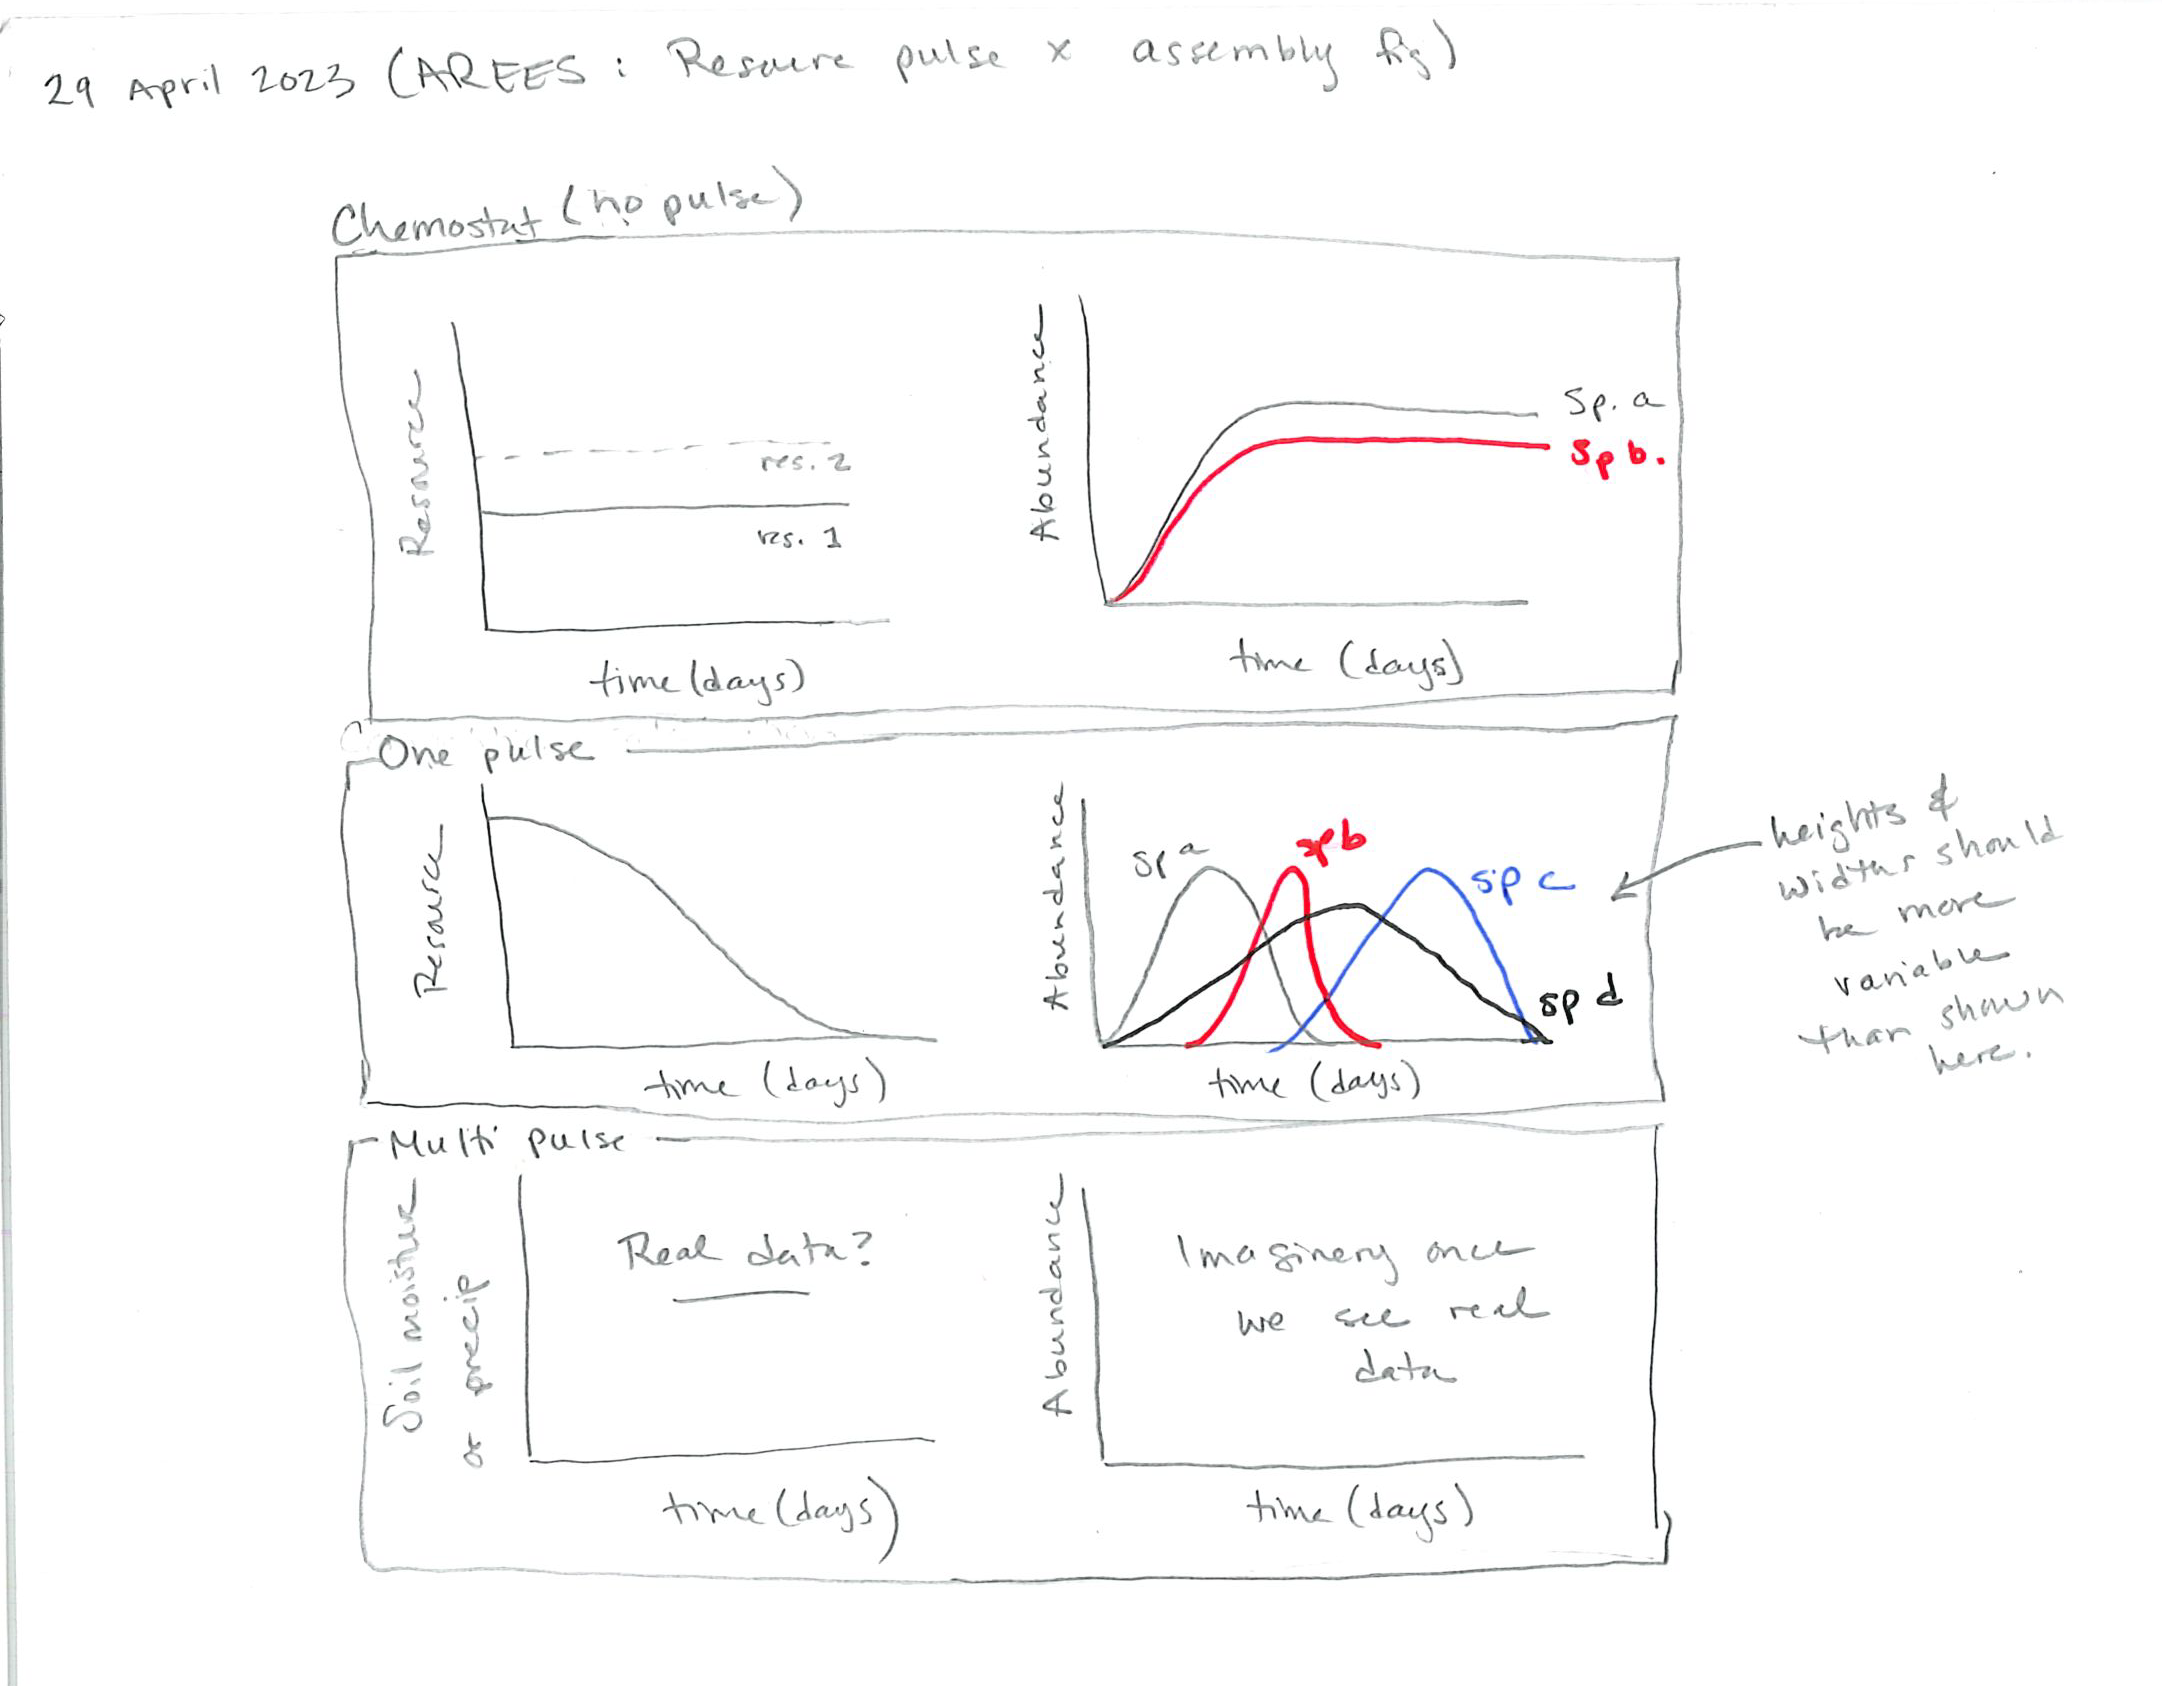 29 April 2023 (AREES: Resource pulse x assembly fig)
Chemostat (no pulse)
Resource
res. 2
res. 1
time (days)
Abundance
Sp. a
Sp b.
time (days)
One pulse
Resource
time (days)
Abundance
sp a
spb
sp c
sp d
time (days)
heights &
widths should
be more
variable
than shown
here.
Multi pulse
Soil moisture
or precip
Real data?
time (days)
Abundance
Imaginery once
we see real
data
time (days)